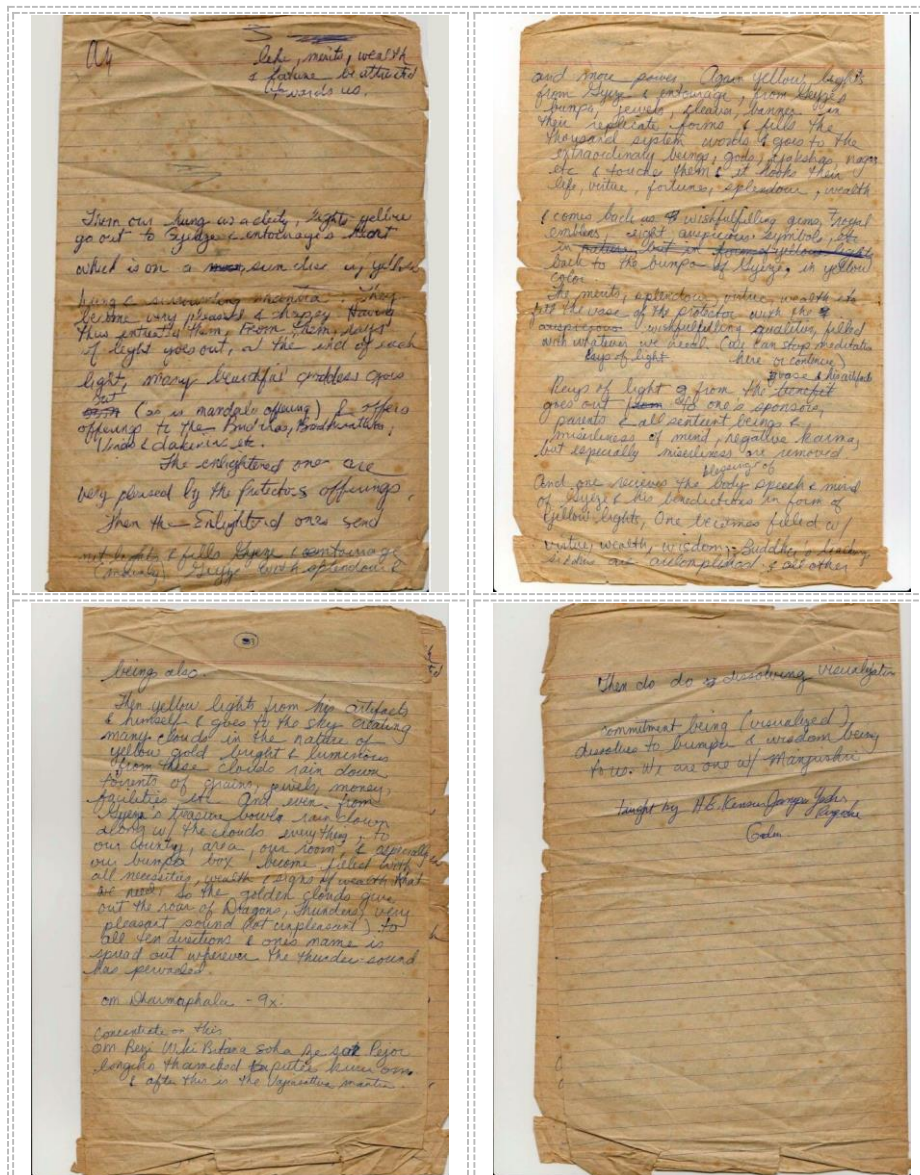 life, merits, wealth
& fortune be attracted
towards us.
From our hung as a deity, lights yellow
go out to Gyeze & entourage's heart
which is on a sun disc w/ yellow
hung & surrounding mantra. They
become very pleased & happy. Having
thus entreated them, From them, rays
of light goes out, at the end of each
light, many beautiful goddess goes
out (as in mandala offering) & offers
offerings to the Buddhas, Bodhisattvas,
& dakinis etc.
The enlightened ones are
very pleased by the Protectors offerings,
Then the Enlightend ones send
lights & fills Gyeze & entourage
(mainly) Gyeze with splendour &
and more power. Again yellow lights
from Gyeze & entourage, from Gyeze's
bumpa, jewels, cleaver, banner
their replicate forms & fills the
thousand system worlds & goes to the
extraordinary beings, gods, yakshas, nagas
etc & touches them & it hooks their
life, virtue, fortunes, splendour, wealth
& comes back as wishfulfilling gems, 7 royal
emblems, eight auspicious symbols, etc
in nature, but in form of yellow light
back to the bumpa of Gyeze, in yellow
color.
The merits, splendour, virtue, wealth etc
fill the vase of the protector with the
auspicious wishfulfilling qualities, filled
with whatever we need. (We can stop meditation
here or continue)
rays of light
vase & his artifacts
Rays of light from the benefit
goes out from to one's sponsors,
parents & all sentient beings &
miserliness of mind, negative karma,
but especially miserliness are removed
blessing of
And one recieves the body speech & mind
of Gyeze & his benedictions in form of
yellow lights, One becomes filled w/
virtue, wealth, wisdom, Buddha's teaching
are accomplished & all other
being also.
Then yellow lights from his artifacts
& himself & goes to the sky creating
many clouds in the nature of
yellow gold bright & luminous
from these clouds rain down
torrents of grains, jewels, money,
facilities etc. And even from
Gyeze's treasure bowls rain down
along w/ the clouds everything, to
our country, area, our room, & especially
our bumpa box become filled with
all necessities, wealth & signs of wealth that
we need. So the golden clouds give
out the roar of Dragons, thunders, very
pleasant sound (not unpleasant) to
all ten directions & one's name is
spread out wherever the thunder-sound
has pervaded.
om Dharmaphala - 9x.
Concentrate on this
om Benzi Wiki Bitana Soha
& after this is the Vajrasattva mantra
Then do do dissolving visualization
commitment being (visualized)
dissolves to bumpa & wisdom being
to us. We are one w/ Manjushri
taught by H.E. Kensur Jampa Yeshe
Rinpoche
Gaden